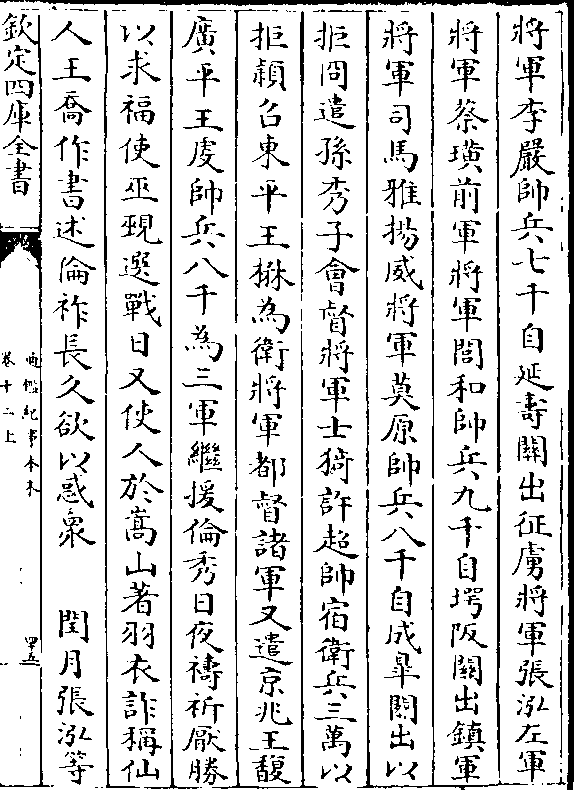 將軍李嚴帥兵七千自延壽關出征虜將軍張泓左軍
將軍蔡璜前軍將軍閭和帥兵九千自堮阪關出鎮軍
將軍司馬雅揚威將軍莫原帥兵八千自成臯關出以
拒冏遣孫秀子會督將軍士猗許超帥宿衛兵三萬以
拒頴召東平王楙為衛將軍都督諸軍又遣京兆王馥
廣平王虔帥兵八千為三軍繼援倫秀日夜禱祈厭勝
以求福使巫覡選戰日又使人於嵩山著羽衣詐稱仙
人王喬作書述倫祚長久欲以惑衆 閏月張泓等
欽定四庫全書
通鑑紀事本末
卷十二上